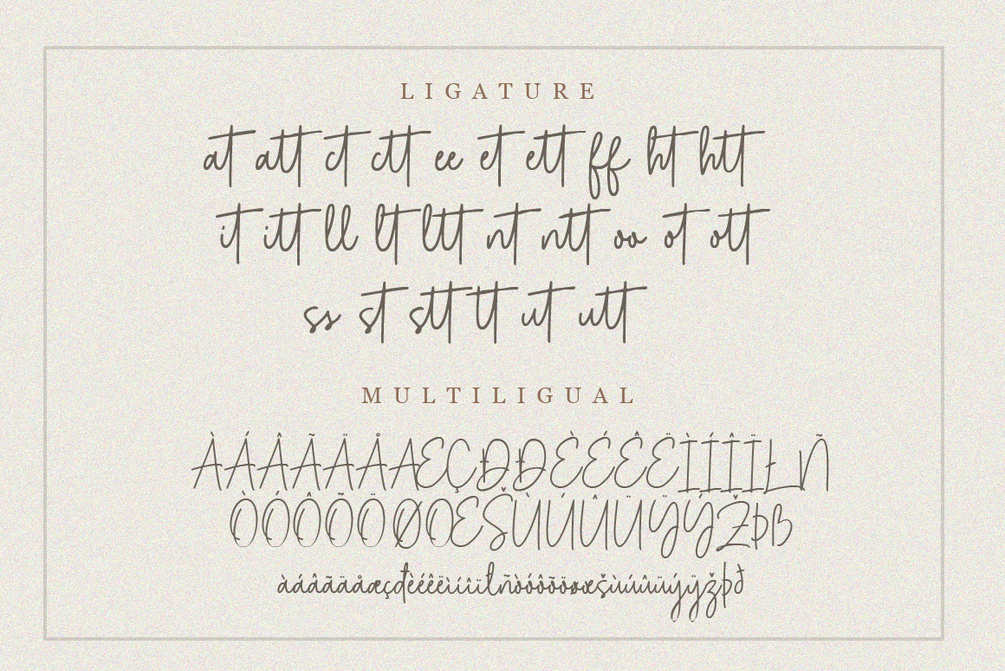 LIGATURE
at att ct ctt ee et ett ff ht htt
it itt ll lt ltt nt ntt oo ot ott
ss st stt tt ut utt
MULTILIGUAL
ÀÁÂÃÄÅÆÇĐÐÈÉÊËÌÍÎÏŁÑ
ÒÓÔÕÖØŒŠÙÚÛÜÝŸŽÞB
àáâãäåæçđèéêëìíîïłñòóôõöøœšùúûüýÿžþð